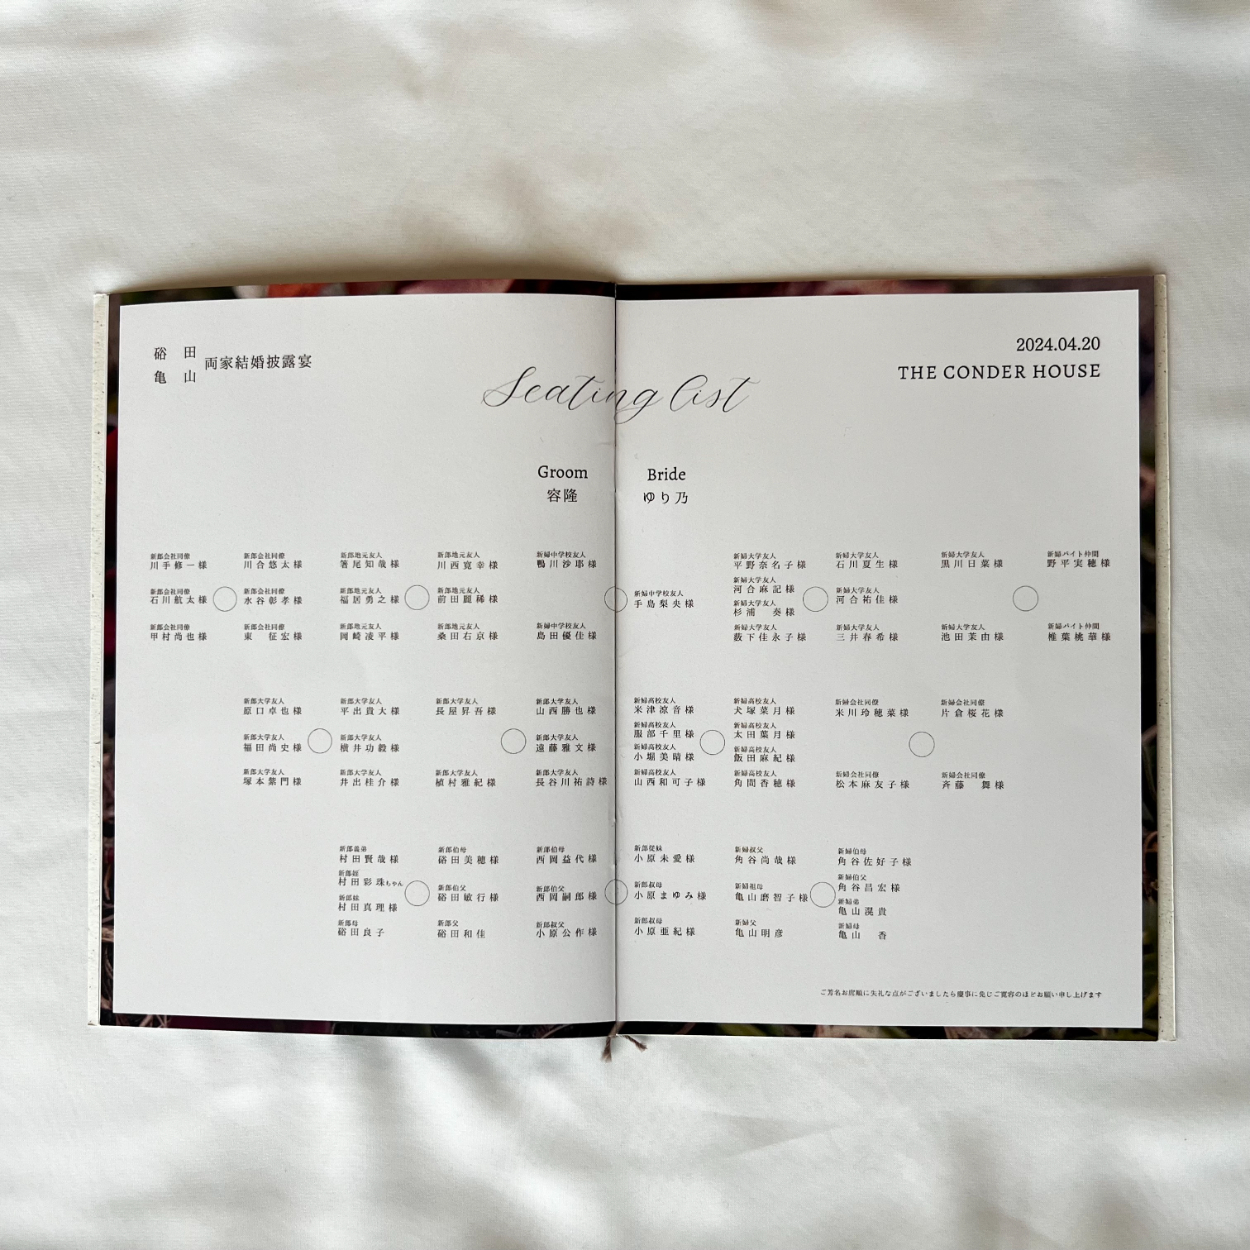 硲 田
亀 山
両家結婚披露宴
Seating list
2024.04.20
THE CONDER HOUSE
Groom
容隆
Bride
ゆり乃
新郎会社同僚
川手修一様
新郎会社同僚
川合悠太様
新郎地元友人
箸尾知哉様
新郎地元友人
川西寛幸様
新婦中学校友人
鴨川沙耶様
新郎会社同僚
石川航太様
新郎会社同僚
水谷彰孝様
新郎地元友人
福居勇之様
新郎地元友人
前田麗稀様
新婦中学校友人
手島梨央様
新郎会社同僚
甲村尚也様
新郎会社同僚
東 征宏様
新郎地元友人
岡崎凌平様
新郎地元友人
桑田右京様
新婦中学校友人
島田優佳様
新婦大学友人
平野奈名子様
新婦大学友人
石川夏生様
新婦大学友人
黒川日菜様
新婦バイト仲間
野平実穂様
新婦大学友人
河合麻記様
新婦大学友人
杉浦 奏様
新婦大学友人
河合祐佳様
新婦大学友人
薮下佳永子様
新婦大学友人
三井春希様
新婦大学友人
池田茉由様
新婦バイト仲間
椎葉桃華様
新郎大学友人
原口卓也様
新郎大学友人
平出貴大様
新郎大学友人
長屋昇吾様
新郎大学友人
山西勝也様
新郎大学友人
福田尚史様
新郎大学友人
横井功毅様
新郎大学友人
遠藤雅文様
新郎大学友人
塚本繁門様
新郎大学友人
井出桂介様
新郎大学友人
植村雅紀様
新郎大学友人
長谷川祐詩様
新婦高校友人
米津涼音様
新婦高校友人
犬塚菜月様
新婦会社同僚
米川玲穂菜様
新婦会社同僚
片倉桜花様
新婦高校友人
服部千里様
新婦高校友人
太田葉月様
新婦高校友人
小堀美晴様
新婦高校友人
飯田麻紀様
新婦高校友人
山西和可子様
新婦高校友人
角間香穂様
新婦会社同僚
松本麻友子様
新婦会社同僚
斉藤 舞様
新郎義弟
村田賢哉様
新郎伯母
硲田美穂様
新郎伯母
西岡益代様
新郎姪
村田彩珠ちゃん
新郎妹
村田真理様
新郎伯父
硲田敏行様
新郎伯父
西岡嗣郎様
新郎母
硲田良子
新郎父
硲田和佳
新郎叔父
小原公作様
新郎従妹
小原未愛様
新婦叔父
角谷尚哉様
新婦伯母
角谷佐好子様
新郎叔母
小原まゆみ様
新婦祖母
亀山磨智子様
新婦伯父
角谷昌宏様
新婦弟
亀山滉貴
新郎叔母
小原亜紀様
新婦父
亀山明彦
新婦母
亀山 香
ご芳名お席順に失礼な点がございましたら慶事に免じご寛容のほどお願い申し上げます